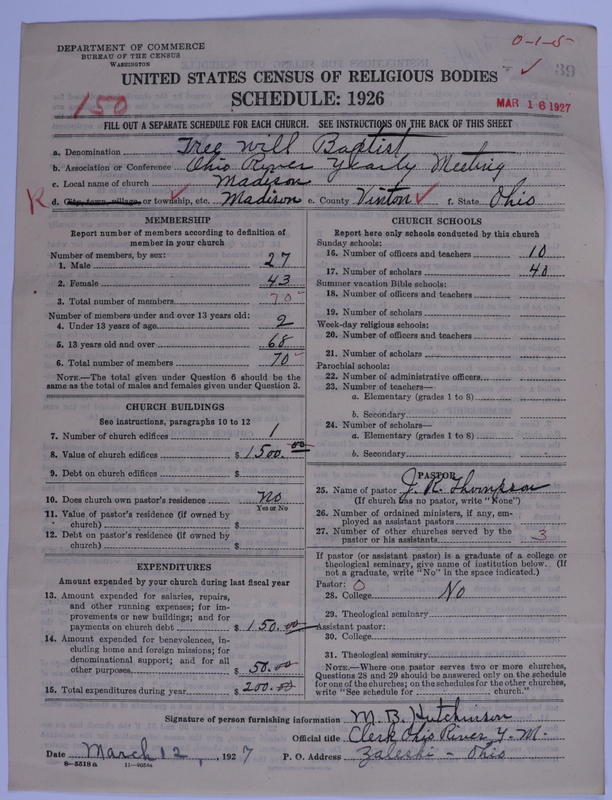 DEPARTMENT OF COMMERCE
BUREAU OF THE CENSUS
WASHINGTON
0-1-5
39
UNITED STATES CENSUS OF RELIGIOUS BODIES
SCHEDULE: 1926
150
MAR 16 1927
FILL OUT A SEPARATE SCHEDULE FOR EACH CHURCH. SEE INSTRUCTIONS ON THE BACK OF THIS SHEET
a. Denomination Free Will Baptist
b. Association or Conference Ohio River Yearly Meeting
c. Local name of church Madison
R d. City, town, village, or township, etc. Madison e. County Vinton f. State Ohio
MEMBERSHIP
Report number of members according to definition of
member in your church
Number of members, by sex:
1. Male 27
2. Female 43
3. Total number of members 70
Number of members under and over 13 years old:
4. Under 13 years of age 2
5. 13 years old and over 68
6. Total number of members 70
NOTE.—The total given under Question 6 should be the
same as the total of males and females given under Question 3.
CHURCH BUILDINGS
See instructions, paragraphs 10 to 12
7. Number of church edifices 1
8. Value of church edifices $ 1500.00
9. Debt on church edifices $
10. Does church own pastor's residence No
Yes or No
11. Value of pastor's residence (if owned by
church) $
12. Debt on pastor's residence (if owned by
church) $
EXPENDITURES
Amount expended by your church during last fiscal year
13. Amount expended for salaries, repairs,
and other running expenses; for im-
provements or new buildings; and for
payments on church debt $ 150.00
14. Amount expended for benevolences, in-
cluding home and foreign missions; for
denominational support; and for all
other purposes $ 50.00
15. Total expenditures during year $ 200.00
CHURCH SCHOOLS
Report here only schools conducted by this church
Sunday schools:
16. Number of officers and teachers 10
17. Number of scholars 40
Summer vacation Bible schools:
18. Number of officers and teachers
19. Number of scholars
Week-day religious schools:
20. Number of officers and teachers
21. Number of scholars
Parochial schools:
22. Number of administrative officers
23. Number of teachers—
a. Elementary (grades 1 to 8)
b. Secondary
24. Number of scholars—
a. Elementary (grades 1 to 8)
b. Secondary
PASTOR
25. Name of pastor J. R. Thompson
(If church has no pastor, write "None")
26. Number of ordained ministers, if any, em-
ployed as assistant pastors
27. Number of other churches served by the
pastor or his assistants 3
If pastor (or assistant pastor) is a graduate of a college or
theological seminary, give name of institution below. (If
not a graduate, write "No" in the space indicated.)
Pastor: 0
28. College No
29. Theological seminary
Assistant pastor:
30. College
31. Theological seminary
NOTE.—Where one pastor serves two or more churches,
Questions 28 and 29 should be answered only on the schedule
for one of the churches; on the schedules for the other churches,
write "See schedule for church."
Signature of person furnishing information M. B. Hutchinson
Official title Clerk Ohio River Y. M.
Date March 12, 1927 P. O. Address Zaleski - Ohio
8-5518a 11-9058a